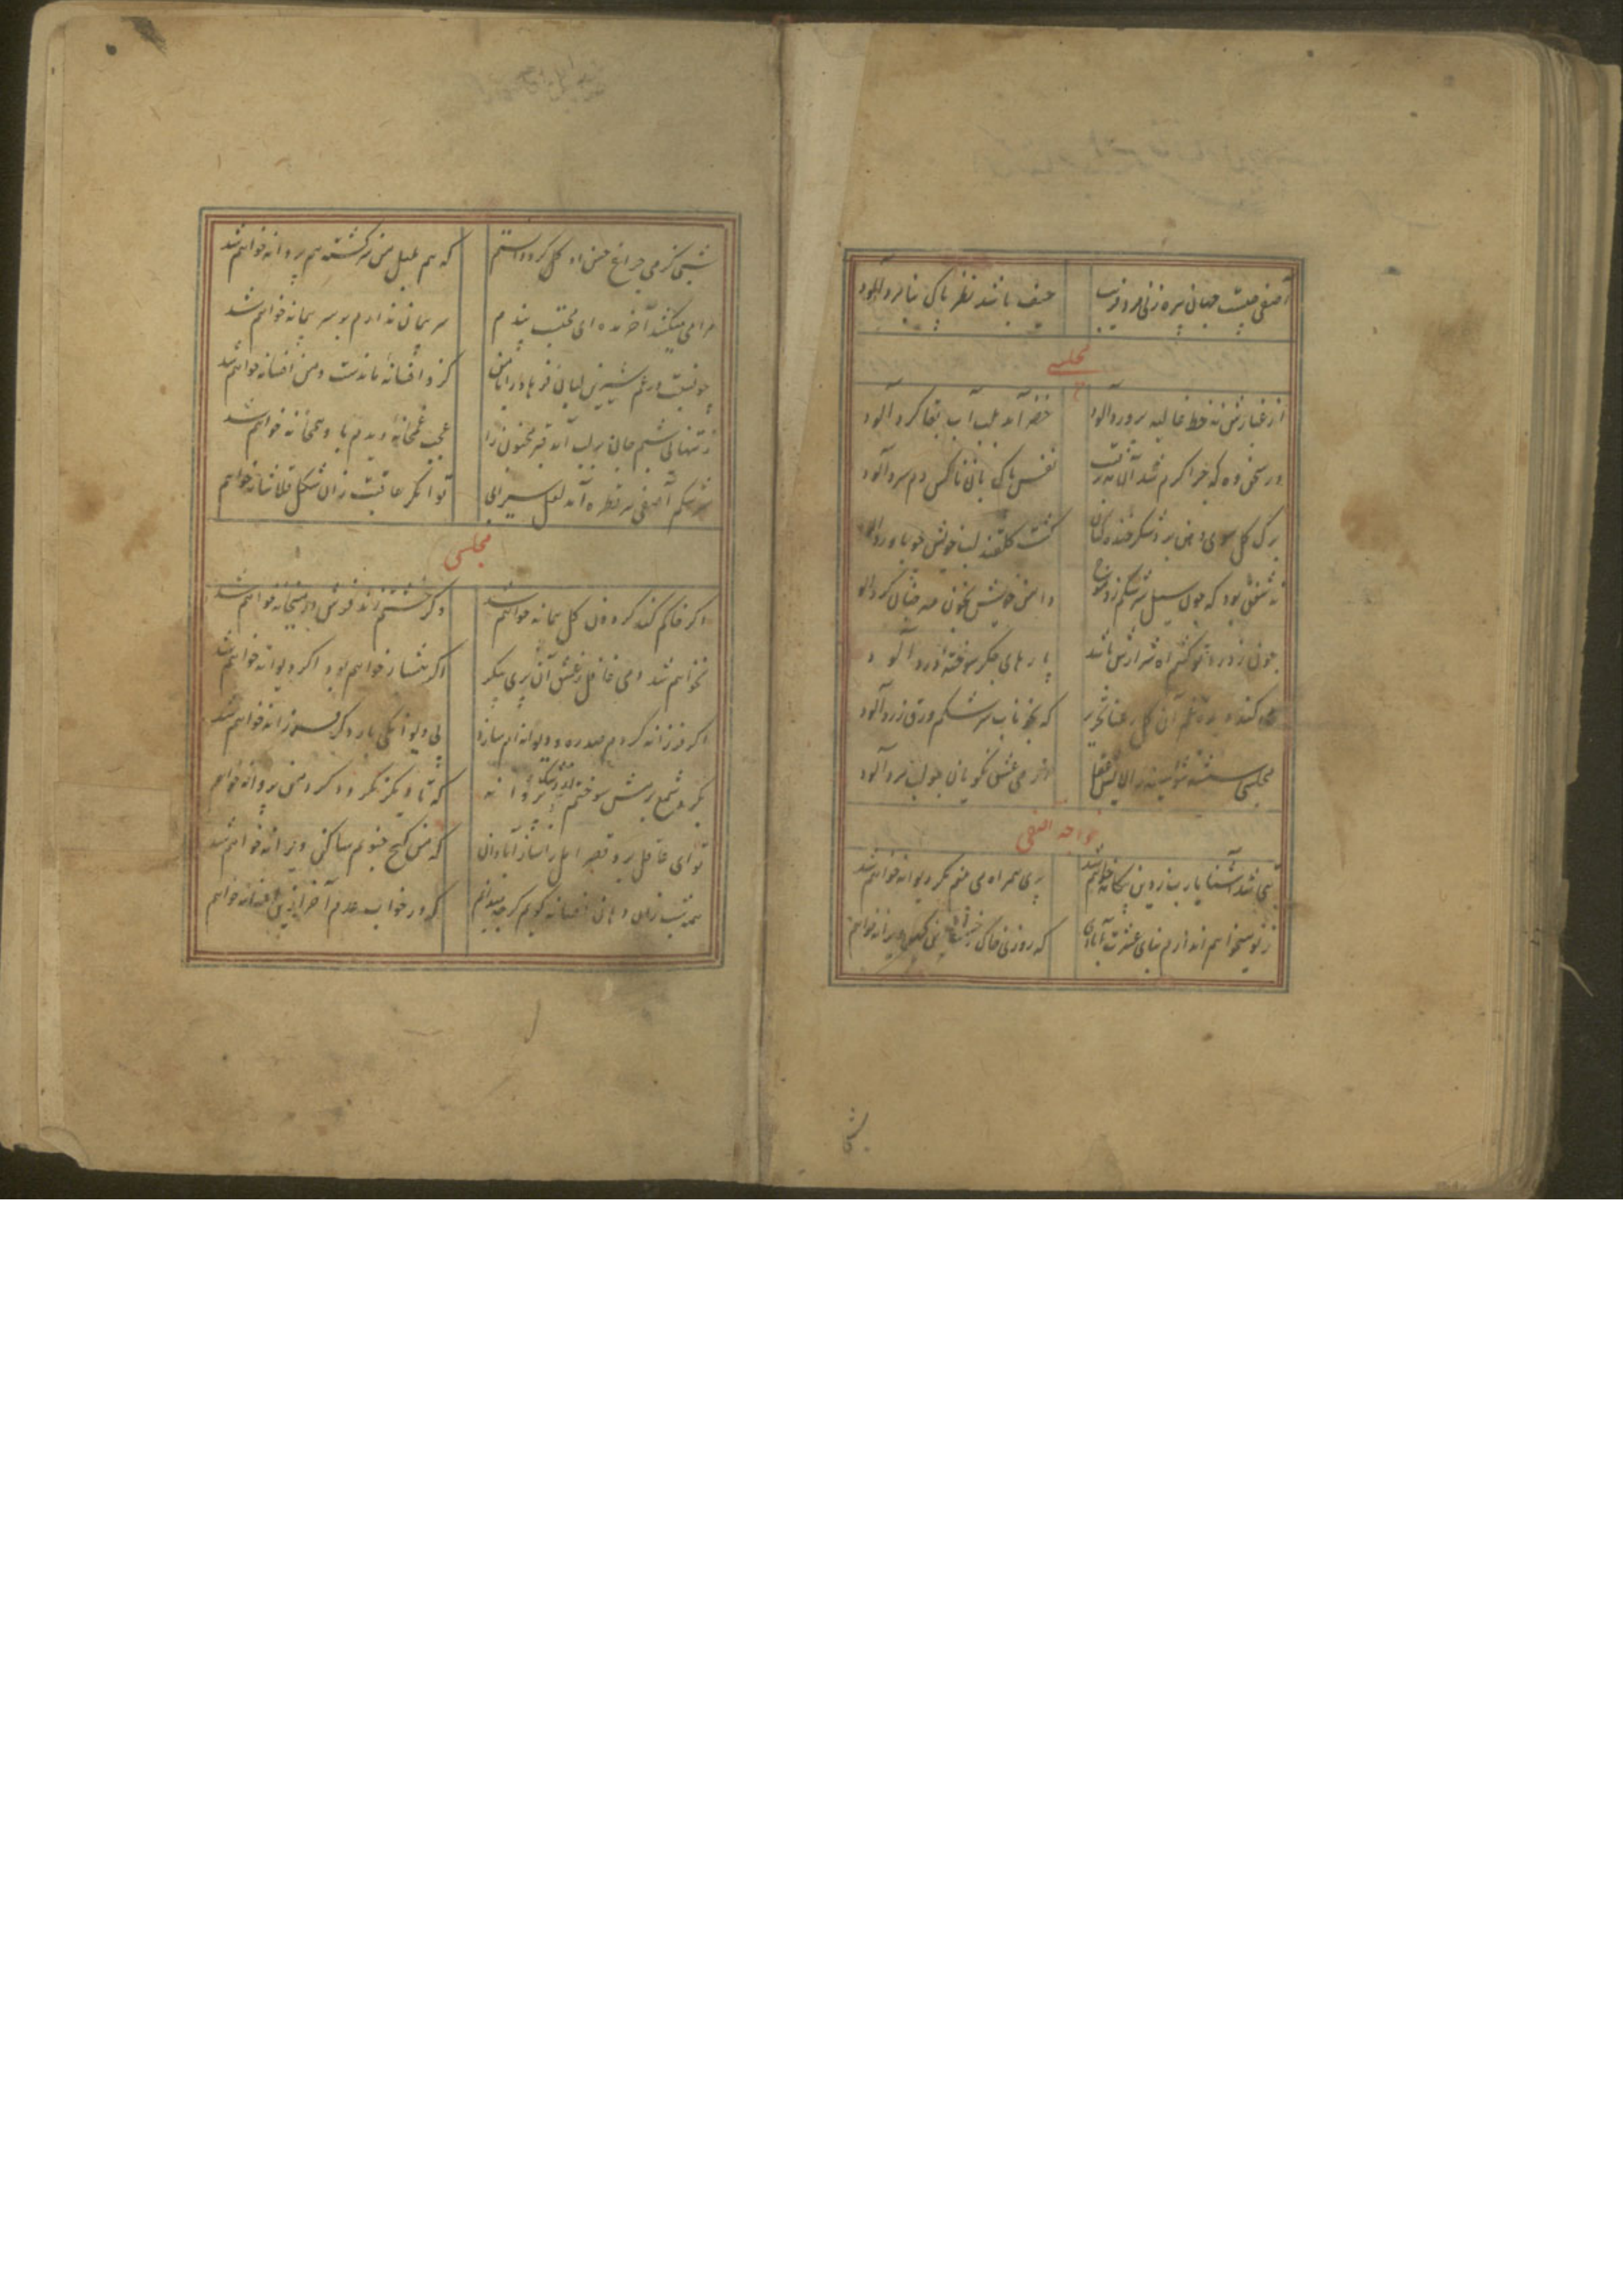 آصفی چیست جهان پیره زنی مرد فریب حیف باشد نظر پاک بنا مرد آلود
مجلسی
از غبارش نه خط غالیه پرورد آلود خضر آمد بلب آب بقا کرد آلود
در سخن وه که چرا گرم شد آن نفس پاک بآن ناکس دم سرد آلود
برک کل سوی دهن برد شکر خنده زنان گشت گلقند لب خویش چو با ورد آلود
نه شفق بود که چون سیل سرشکم زد موج دامن خویش بخون چرخ کرد آلود
چون ز درد تو کشم آه شرارش باشد پارهای جکر سوخته درد آلود
کند دیده غم آن کل رعنا تحریر که بخوناب سرشکم ورق زرد آلود
مجلسی عقل از می عشق نکویان چو لب مرد آلود
خواجه آصفی
بتی شد آشنا یارب ز دین بیکانه خواهم شد پری همراه می بینم مکر دیوانه خواهم شد
ز نو میخواهم اندازم بنای عشرت آبادی که روزی خاک خشت این کهن ویرانه خواهم
شبی کز می چراغ حسن او کل کرد دانستم که هم بلبل من سرکشته هم پروانه خواهم شد
مرا می میکشد آخر مده ای محتسب پندم سر پیمان ندارم بر سر پیمانه خواهم شد
چو نسبت در غم شیرین لبان فرهاد را با من کزو افسانهٔ ماندست و من افسانه خواهم شد
ز تنهائی شبم جان بر لب آمد قبر مجنون را عجب غمخانهٔ دیدم باو همخانه خواهم شد
سرشکم آصفی هر قطره آمد لعل سیرابی توانکر عاقبت زان شکل قلاشانه خواهم
مجلسی
اگر خاکم کند گردون کل پیمانه خواهم شد وگر خشتم زند فرش در میخانه خواهم شد
نخواهم شد دمی غافل ز عشق آن پری پیکر اگر هشیار خواهم بود اگر دیوانه خواهم شد
اگر فرزانه کردم صد ره و دیوانه ام سازد پی دیوانکی بار دگر فرزانه خواهم شد
بکرد شمع رویش سوختم پروانه که تا دیگر نگردد کرد من پروانه خواهم
تو ای عاقل برو قصر امل را ساز آبادان که من کنج جنونم ساکن ویرانه خواهم شد
همه شب زان دهان افسانه کویم کرچه میدانم که در خواب عدم آخر ازین افسانه خواهم